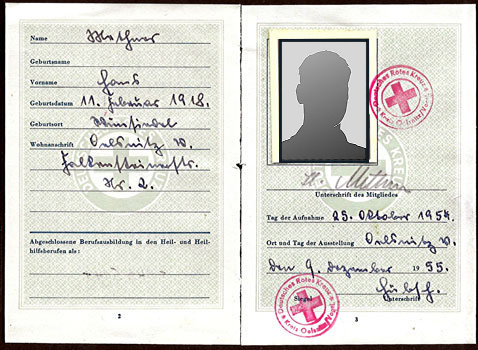 Name
Geburtsname
Vorname Hans
Geburtsdatum 11. Februar 1918.
Geburtsort
Wohnanschrift Oelsnitz V.
Falkensteinerstr.
Nr. 2.
Abgeschlossene Berufsausbildung in den Heil- und Heil-
hilfsberufen als:
2
Deutsches Rotes Kreuz
Kreis Oelsnitz/Vogtl.
Unterschrift des Mitgliedes
Tag der Aufnahme 25. Oktober 1954.
Ort und Tag der Ausstellung Oelsnitz V.
den 9. Dezember 1955.
Siegel Unterschrift
Deutsches Rotes Kreuz
Kreis Oelsnitz/Vogtl.
3